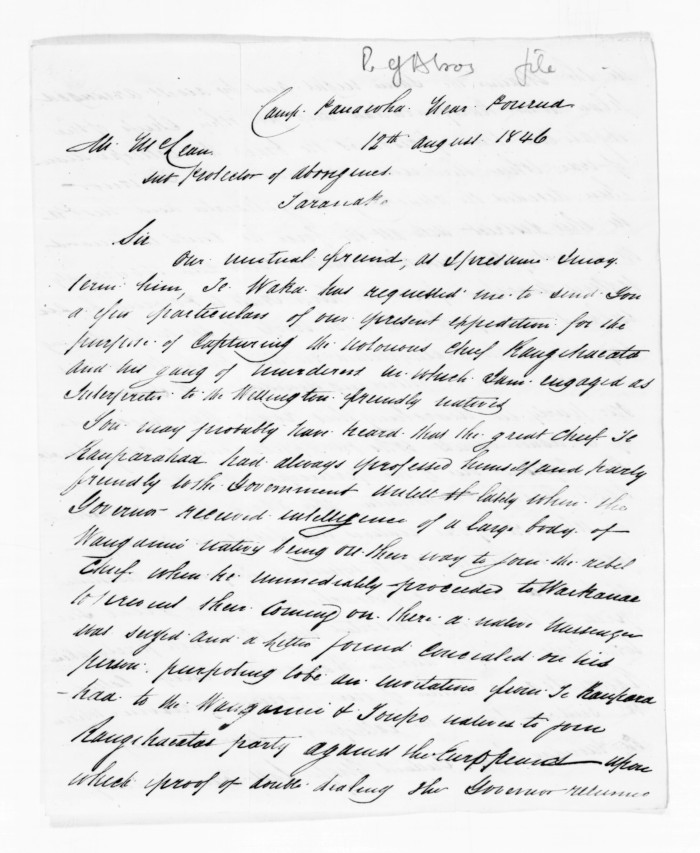 file
Camp. Near
12th August 1846
Mr McLean
Sub Protector of Aborigines.
Taranaki
Sir
Our mutual freind, as I presume I may
term him, Te Waka has requested me to send You
a few particulars of our present expedition for the
purpose of Capturing the notorious Chief Rangihaeata
and his gang of murderers in which I am engaged as
Interpreter to the Wellington freindly natives
You may probably have heard that the great Chief Te
Rauparahaa had always professed himself and party
freindly to the Government untill lately when the
Governor received intelligence of a large body of
Wanganui natives being on their way to join the rebel
Chief when he immediately proceeded to Waikanae
to prevent their Coming on. there a native messenger
was seized and a letter found Concealed on his
person. purpoting to be an invitation from Te Raupara
-haa to the Wanganui & Toupo natives to join
Rangihaeatas party against the Europeans upon
which proof of double dealing the Governor returned